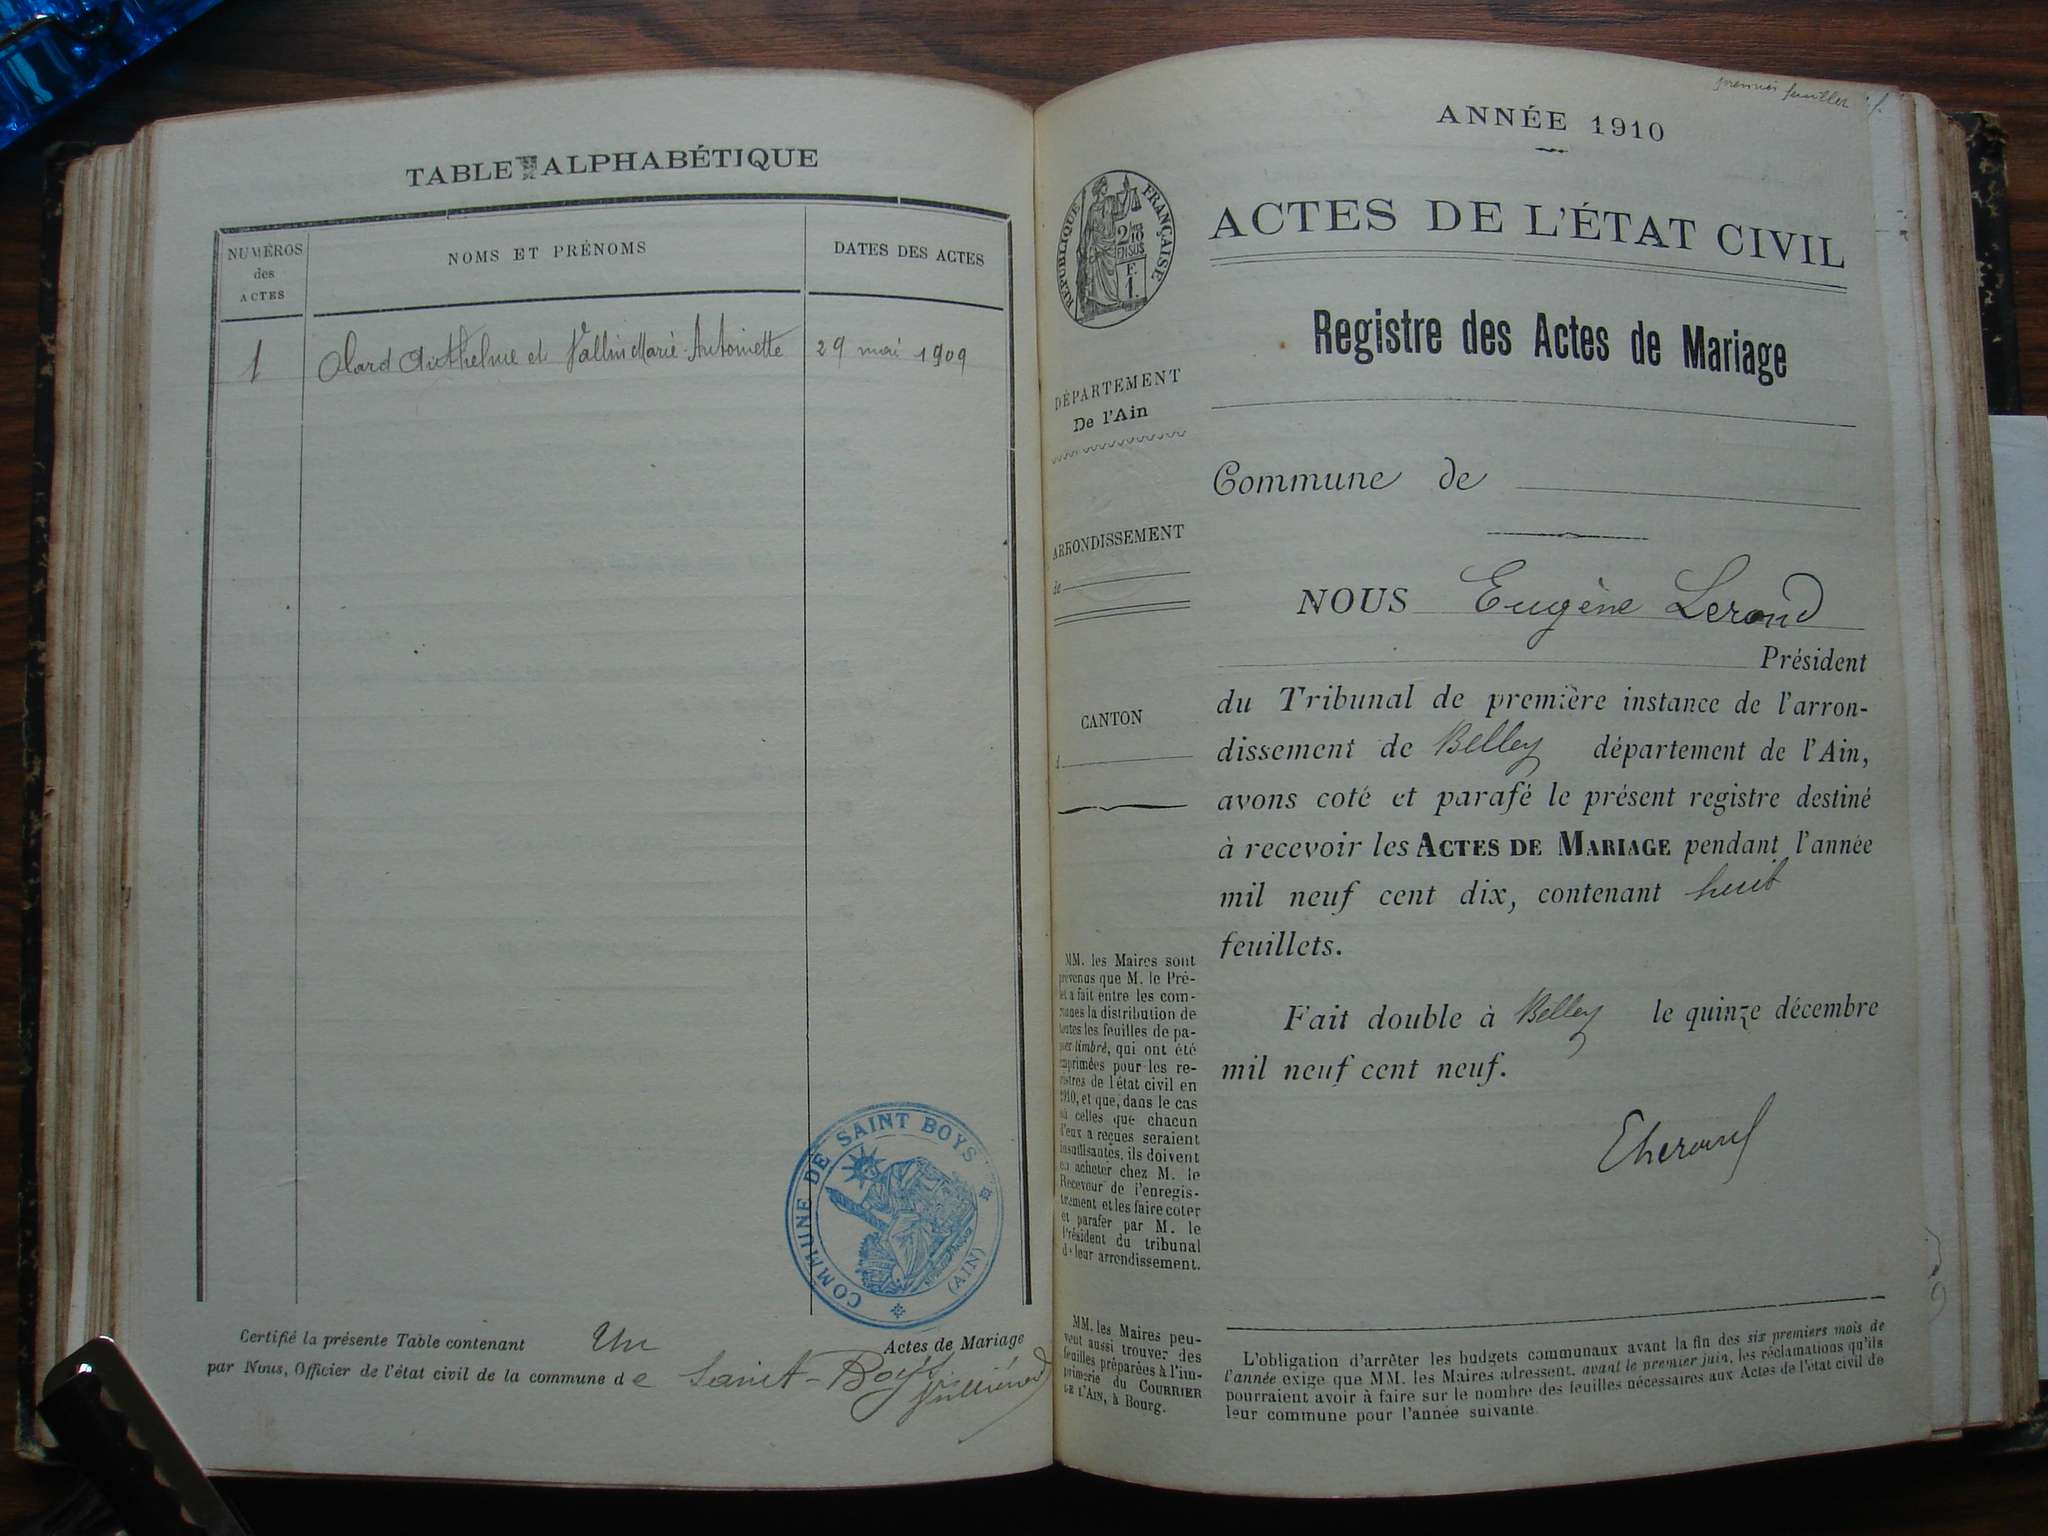 TABLE ALPHABÉTIQUE
NUMÉROS
des
ACTES
NOMS ET PRÉNOMS
DATES DES ACTES
1 Olard Anthelme et Vallin Marie-Antoinette 29 mai 1909
COMMUNE DE SAINT BOYS
(AIN)
Certifié la présente Table contenant Un Actes de Mariage
par Nous, Officier de l'état civil de la commune de Saint-Boys
premier feuillet
ANNÉE 1910
RÉPUBLIQUE FRANÇAISE
2/10
EN SUS
F.
1.
ACTES DE L'ÉTAT CIVIL
Registre des Actes de Mariage
DÉPARTEMENT
De l'Ain
Commune de
ARRONDISSEMENT
de
NOUS Eugène Lerond
Président
CANTON
du Tribunal de première instance de l'arron-
dissement de Belley département de l'Ain,
avons coté et parafé le présent registre destiné
à recevoir les ACTES DE MARIAGE pendant l'année
mil neuf cent dix, contenant huit
feuillets.
Fait double à Belley le quinze décembre
mil neuf cent neuf.
MM. les Maires sont
prévenus que M. le Pré-
fet a fait entre les com-
munes la distribution de
toutes les feuilles de pa-
pier timbré, qui ont été
imprimées pour les re-
gistres de l'état civil en
1910, et que, dans le cas
où celles que chacun
d'eux a reçues seraient
insuffisantes, ils doivent
en acheter chez M. le
Receveur de l'enregis-
trement et les faire coter
et parafer par M. le
Président du tribunal
de leur arrondissement.
MM. les Maires peu-
vent aussi trouver des
feuilles préparées à l'im-
primerie du COURRIER
DE L'AIN, à Bourg.
L'obligation d'arrêter les budgets communaux avant la fin des six premiers mois de
l'année exige que MM. les Maires adressent, avant le premier juin, les réclamations qu'ils
pourraient avoir à faire sur le nombre des feuilles nécessaires aux Actes de l'état civil de
leur commune pour l'année suivante.